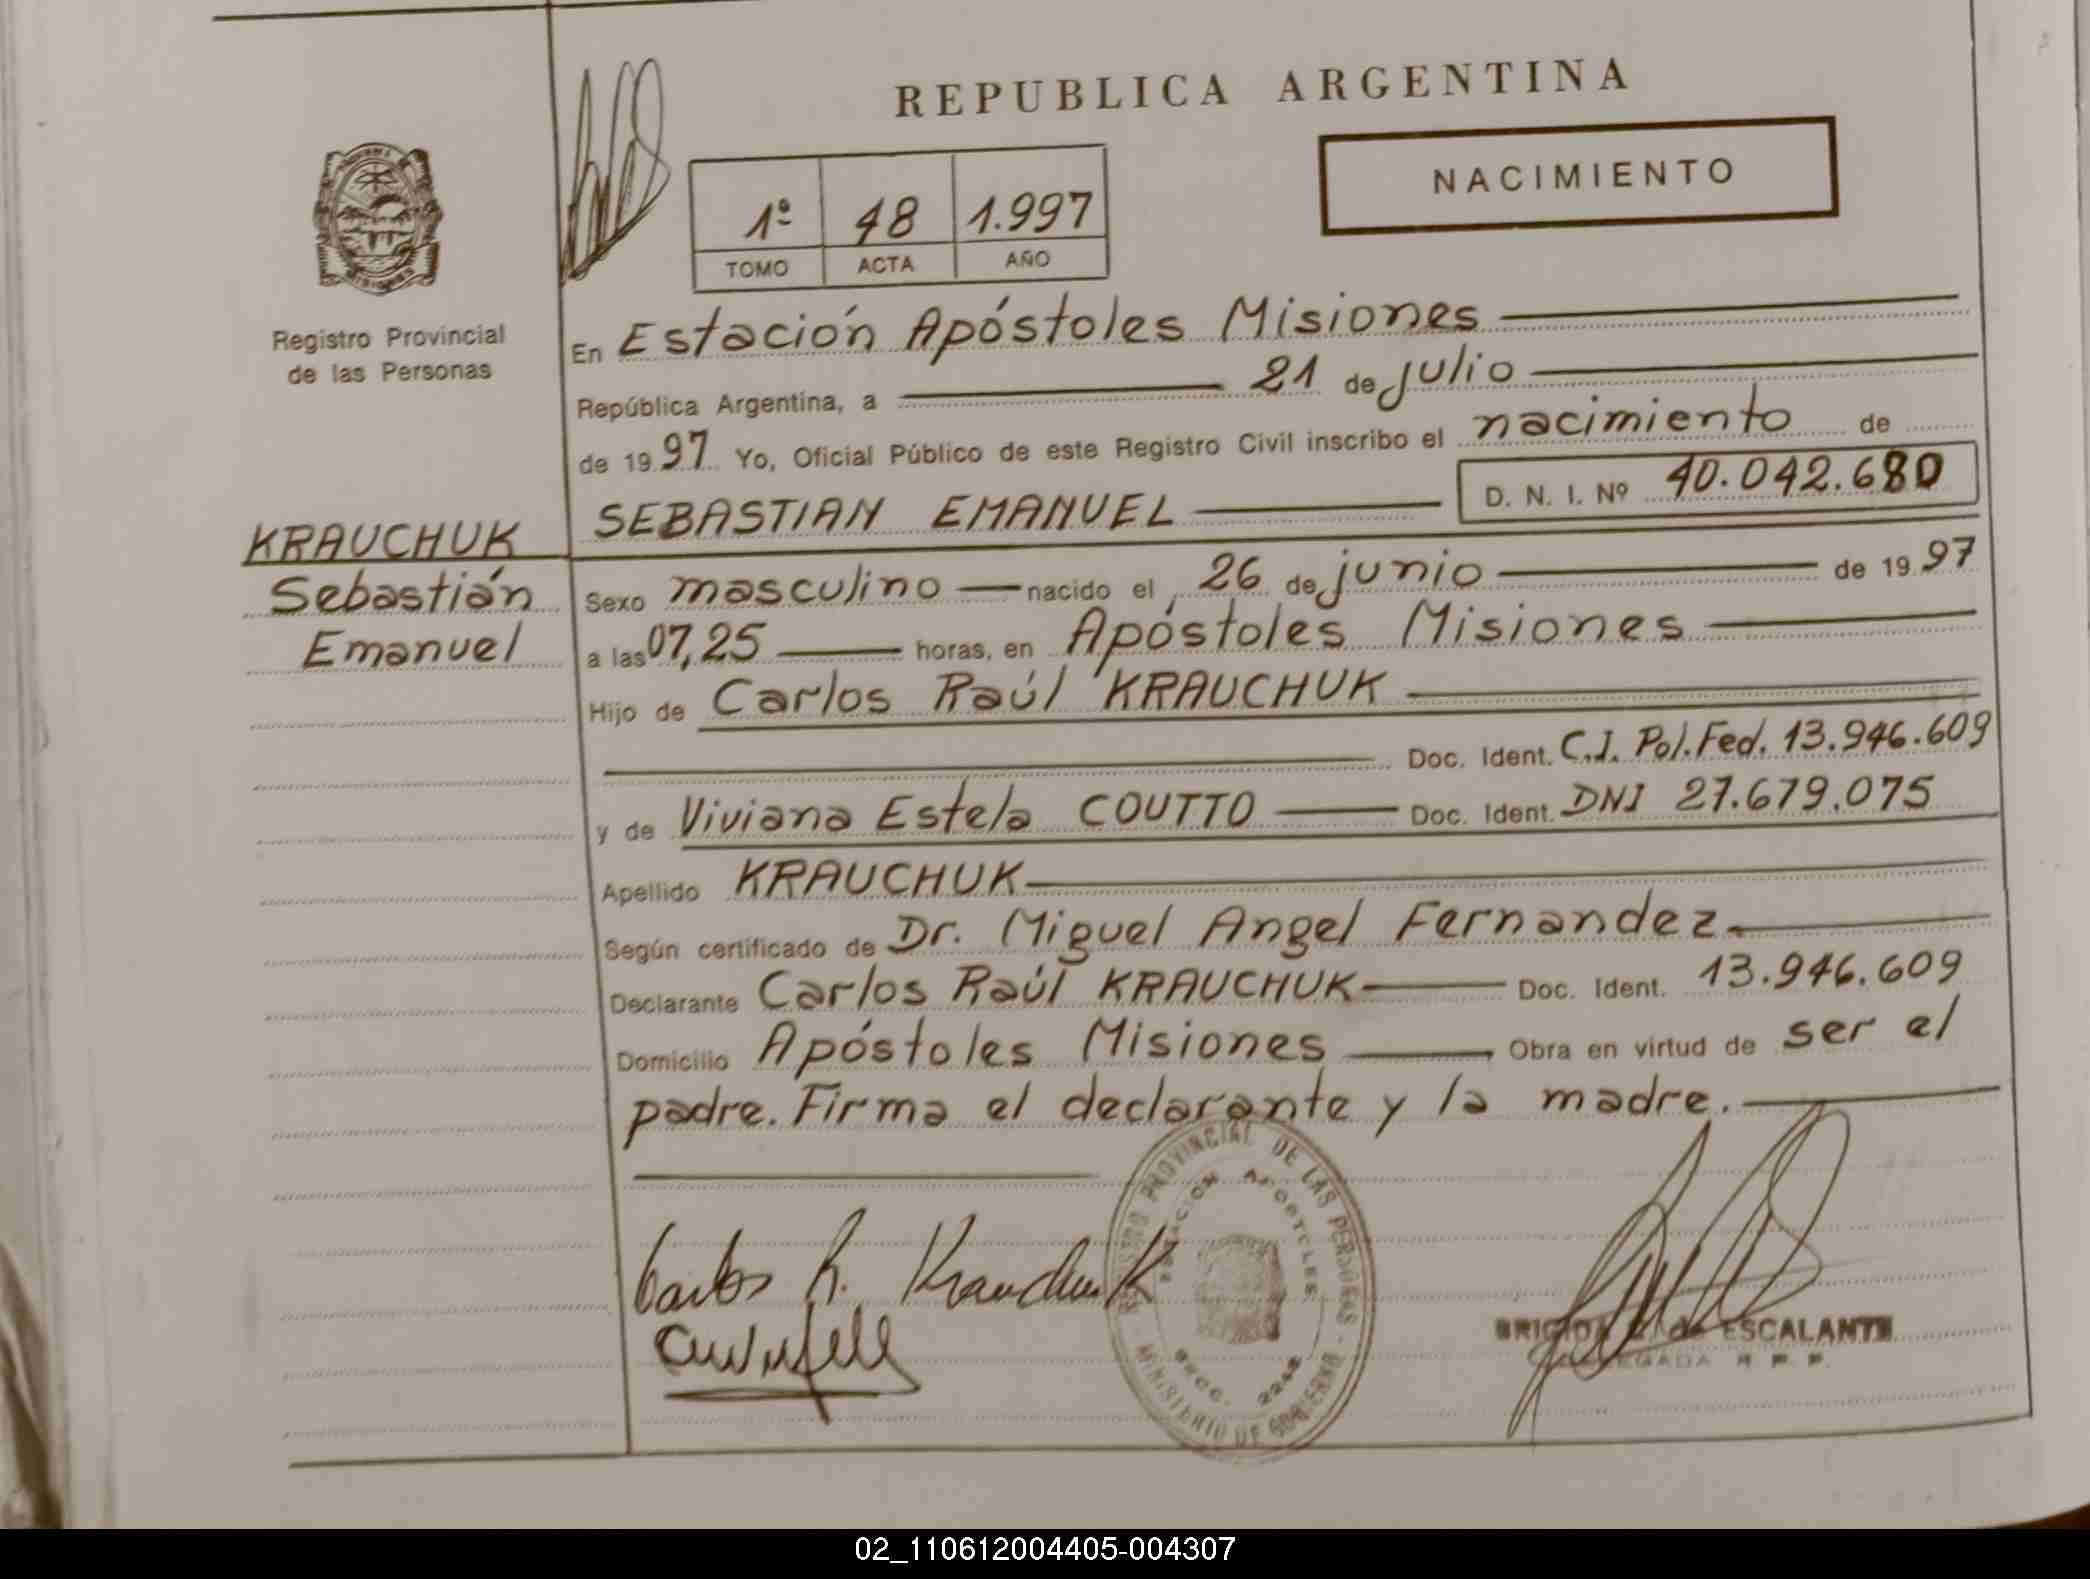 REPUBLICA ARGENTINA
NACIMIENTO
1º 48 1.997
TOMO ACTA AÑO
Registro Provincial
de las Personas
En Estación Apóstoles Misiones
República Argentina, a 21 de julio
de 1997 Yo, Oficial Público de este Registro Civil inscribo el nacimiento de
SEBASTIAN EMANUEL D. N. I. Nº 40.042.680
KRAUCHUK
Sebastián
Emanuel
Sexo masculino nacido el 26 de junio de 1997
a las 07,25 horas, en Apóstoles Misiones
Hijo de Carlos Raúl KRAUCHUK
Doc. Ident. C.I. Pol. Fed. 13.946.609
y de Viviana Estela COUTTO Doc. Ident. DNI 27.679.075
Apellido KRAUCHUK
Según certificado de Dr. Miguel Angel Fernandez.
Declarante Carlos Raúl KRAUCHUK Doc. Ident. 13.946.609
Domicilio Apóstoles Misiones Obra en virtud de ser el
padre. Firma el declarante y la madre.
Carlos R. Krauchuk
REGISTRO PROVINCIAL DE LAS PERSONAS
ESTACION APOSTOLES
SECC. 2242
MINISTERIO DE GOBIERNO
ESCALANTE
DELEGADA R. P. P.
02_110612004405-004307